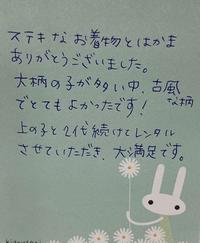 ステキな お着物とはかま
ありがとうございました。
大柄の子が多い中、古風な柄
でとてもよかったです!
上の子と2代続けてレンタル
させていただき、大満足です。